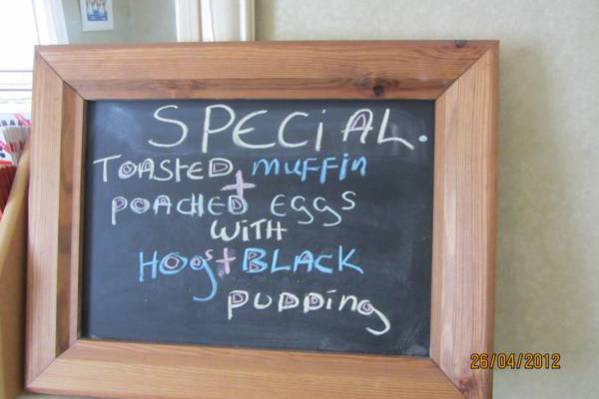 SPECiAL.
TOASTED MUFFiN
+
POACHED EGGS
WiTH
HOgs + BLACK
PUDDiNg
26/04/2012